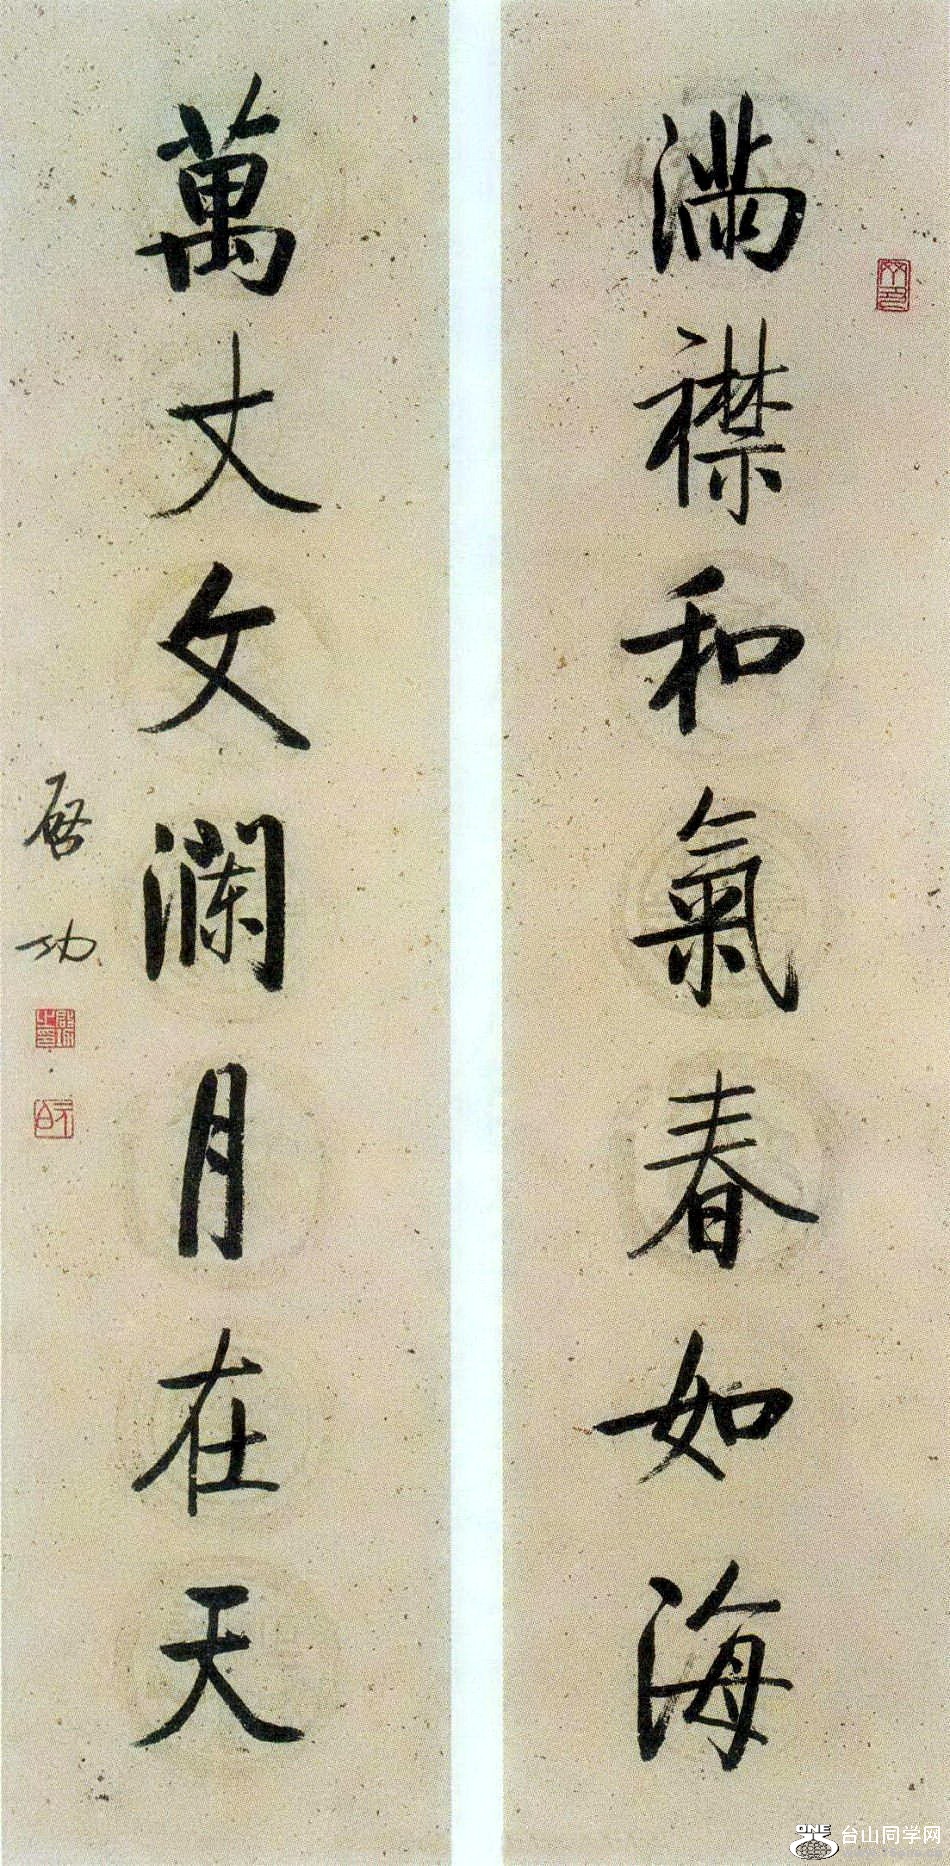 滿襟和氣春如海
萬丈文瀾月在天
啓功
台山同学网